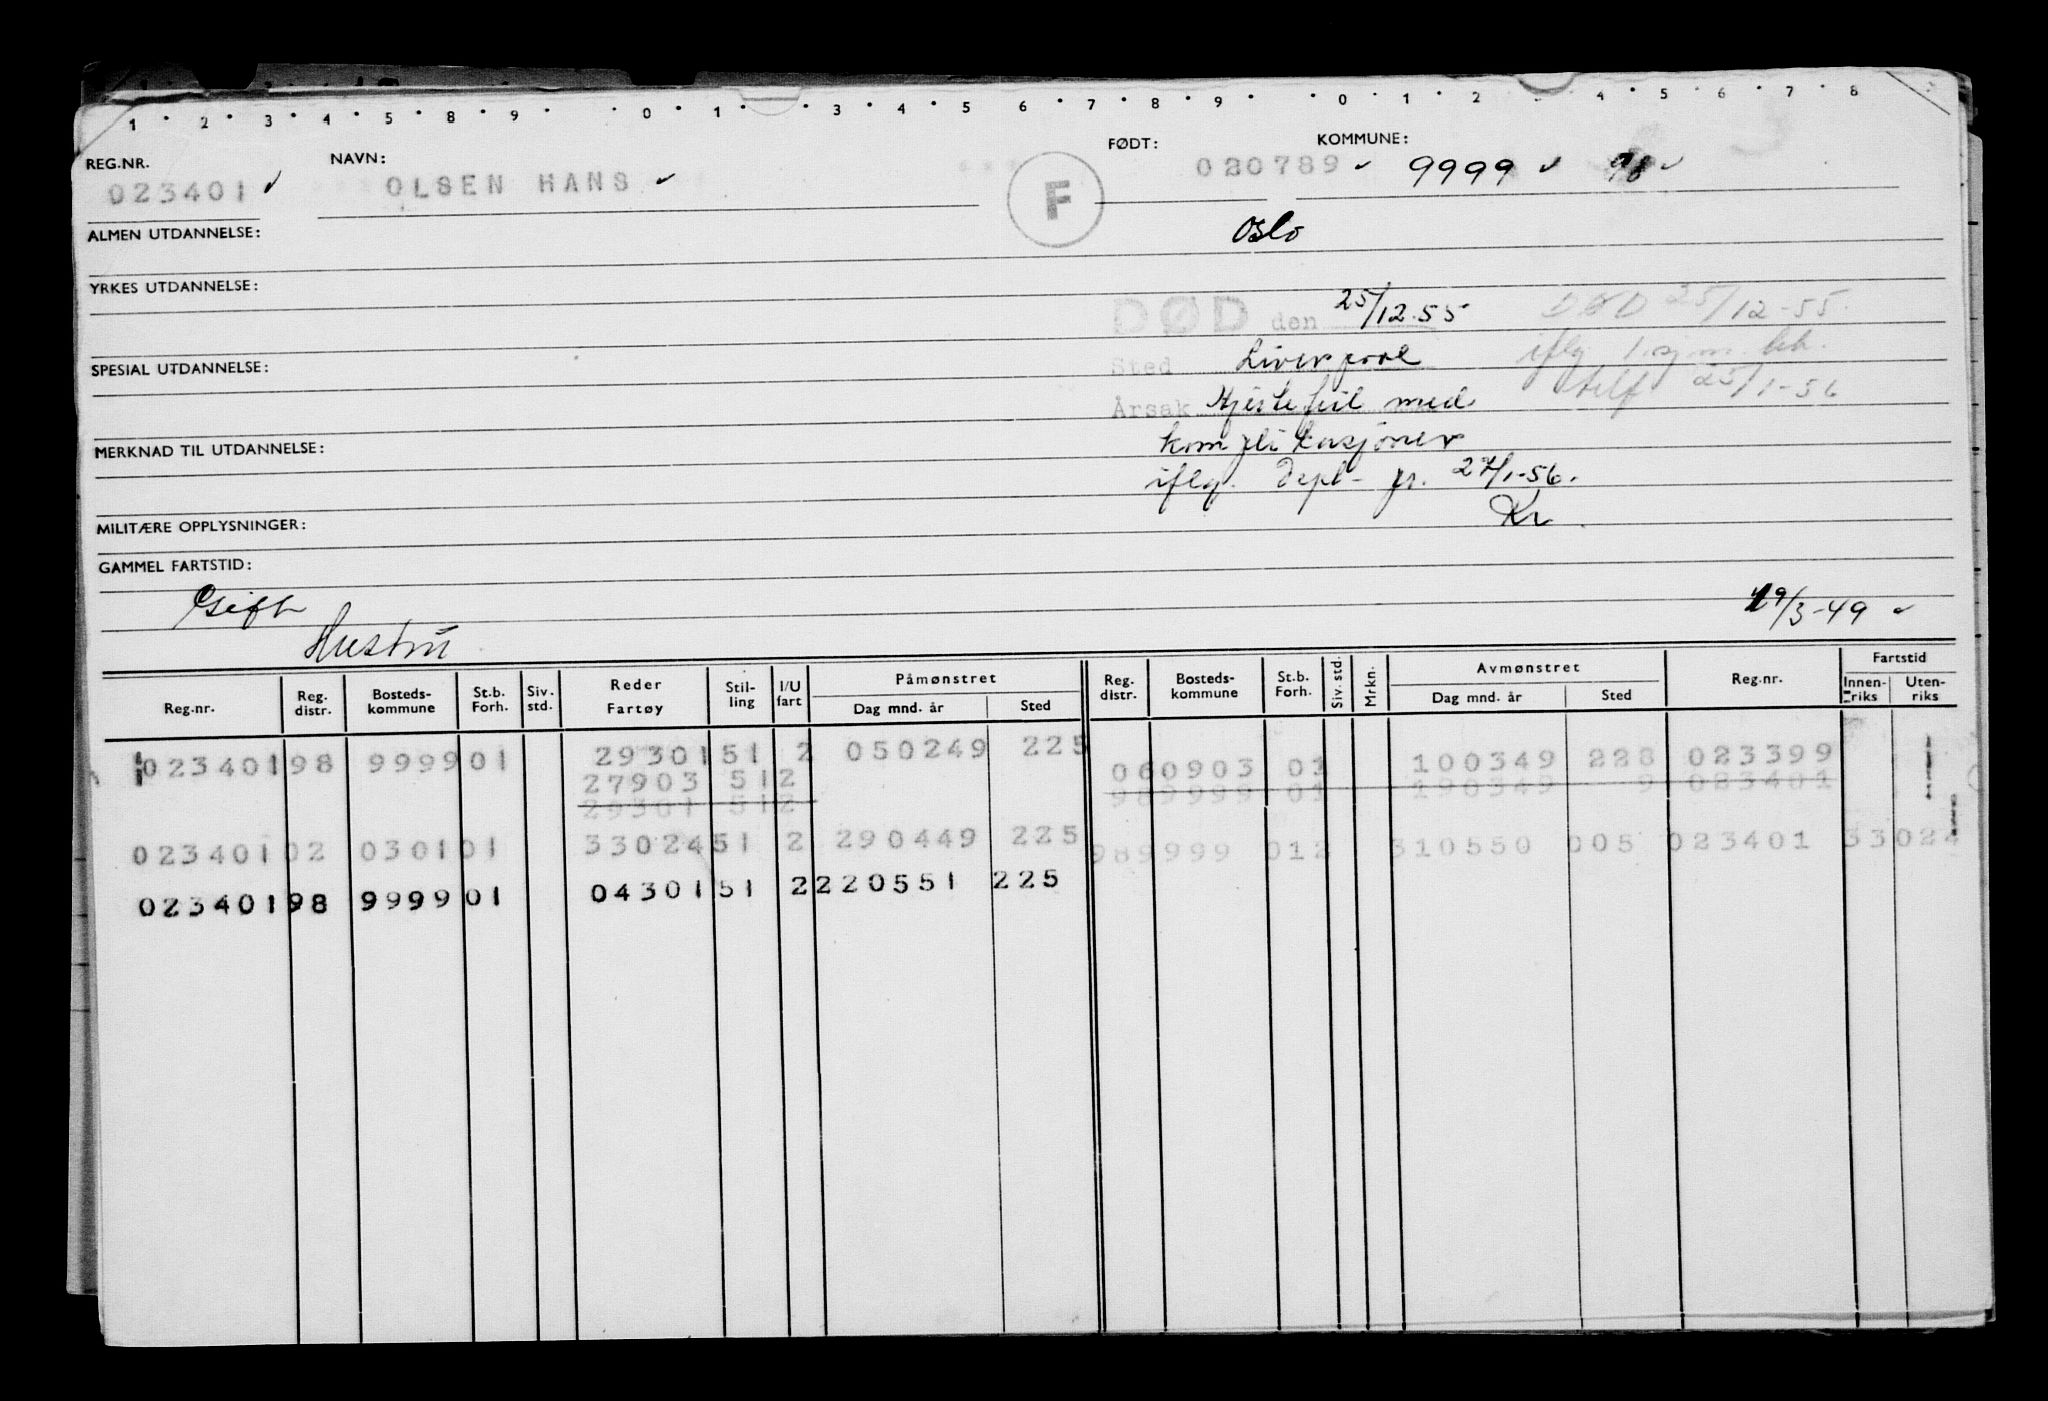 1 · 2 · 3 · 4 · 5 · 8 · 9 · · 0 · 1 · · 3 · 4 · 5 6 · 7 · 8 · 9 · · 0 · 1 · 2 · · 4 · 5 · 6 · 7 · 8
REG.NR. NAVN: FØDT: KOMMUNE:
023401 ✓ OLSEN HANS ✓ F 020789 ✓ 9999 ✓ 98 ✓
ALMEN UTDANNELSE: Oslo
YRKES UTDANNELSE:
DØD den 25/12.55 DØD 25/12-55.
SPESIAL UTDANNELSE: Sted Liverpool iflg
Årsak Hjertefeil med 25/1-56
MERKNAD TIL UTDANNELSE: komplikasjoner
iflg. Depl- pr. 27/1-56.
MILITÆRE OPPLYSNINGER: Kr
GAMMEL FARTSTID:
Gift 19/3-49 ✓
Hustru
Reg.nr. Reg. distr. Bosteds-kommune St.b. Forh. Siv. std. Reder Fartøy Stil-ling I/U fart Påmønstret Dag mnd. år Sted Reg. distr. Bosteds-kommune St.b. Forh. Siv. std. Mrkn. Avmønstret Dag mnd. år Sted Reg.nr. Fartstid Innen-riks Uten-riks
023401 98 9999 01 29301 51 2 050249 225 060903 01 100349 228 023399
27903 51 2 989999 01 190349 9 023401
29301 51 2
023401 02 0301 01 33024 51 2 290449 225 989999 012 310550 005 023401 33024
023401 98 9999 01 04301 51 2 220551 225